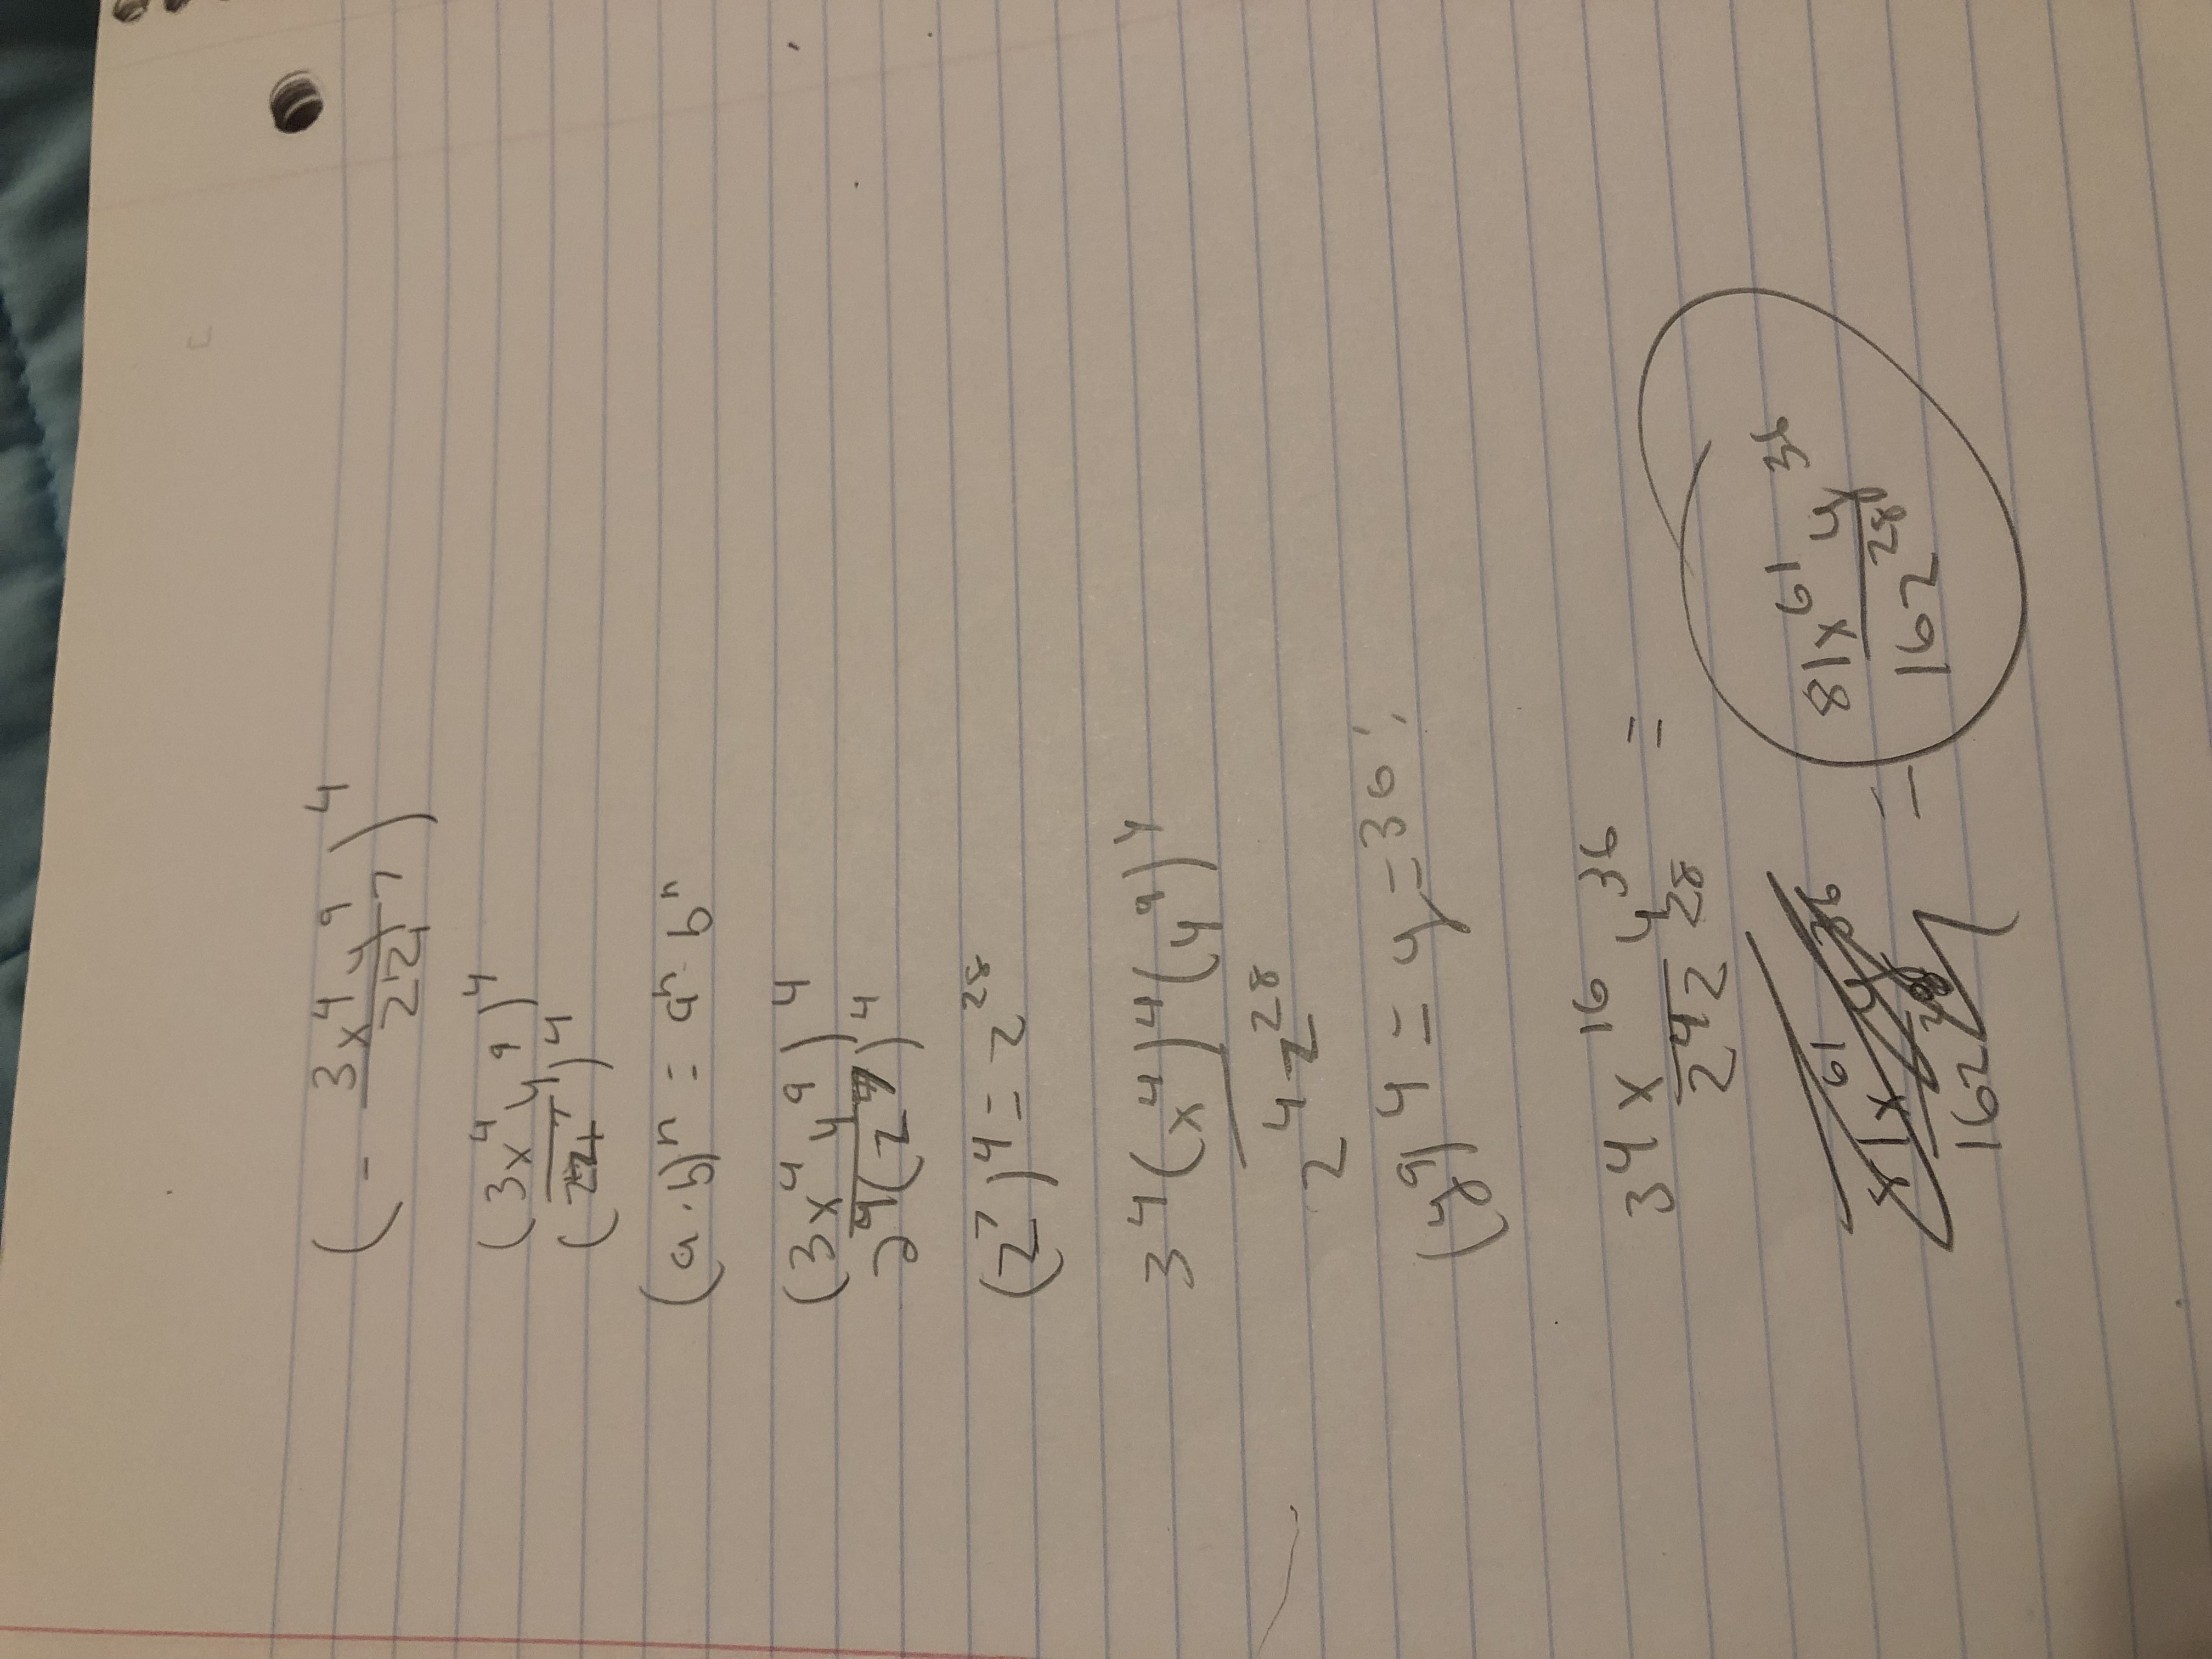 (- 3x^4 y^9 / 2z^7)^4
(3x^4 y^9)^4
(2z^7)^4
(a·b)^n = a^n·b^n
(3x^4 y^9)^4
2^4(z^7)^4
(z^7)^4 = z^28
3^4(x^4)^4(y^9)^4
2^4 z^28
(y^9)^4 = y = 36;
3^4 x^16 y^36 =
2^4 z^28
81x^61 y^36
16z^28